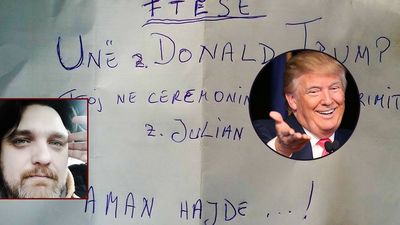 FTESE
UNË z. DONALD TRUMP?
NE CEREMONIN
z. JULIAN
AMAN HAJDE ...!